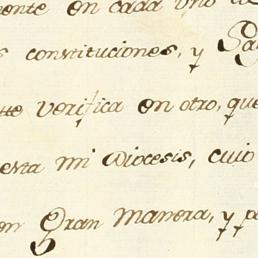 mente en cada uno de
s constituciones, y Pa
que verifica en otro, que
esta mi Diocesis, cuio
en Gran Manera, y p